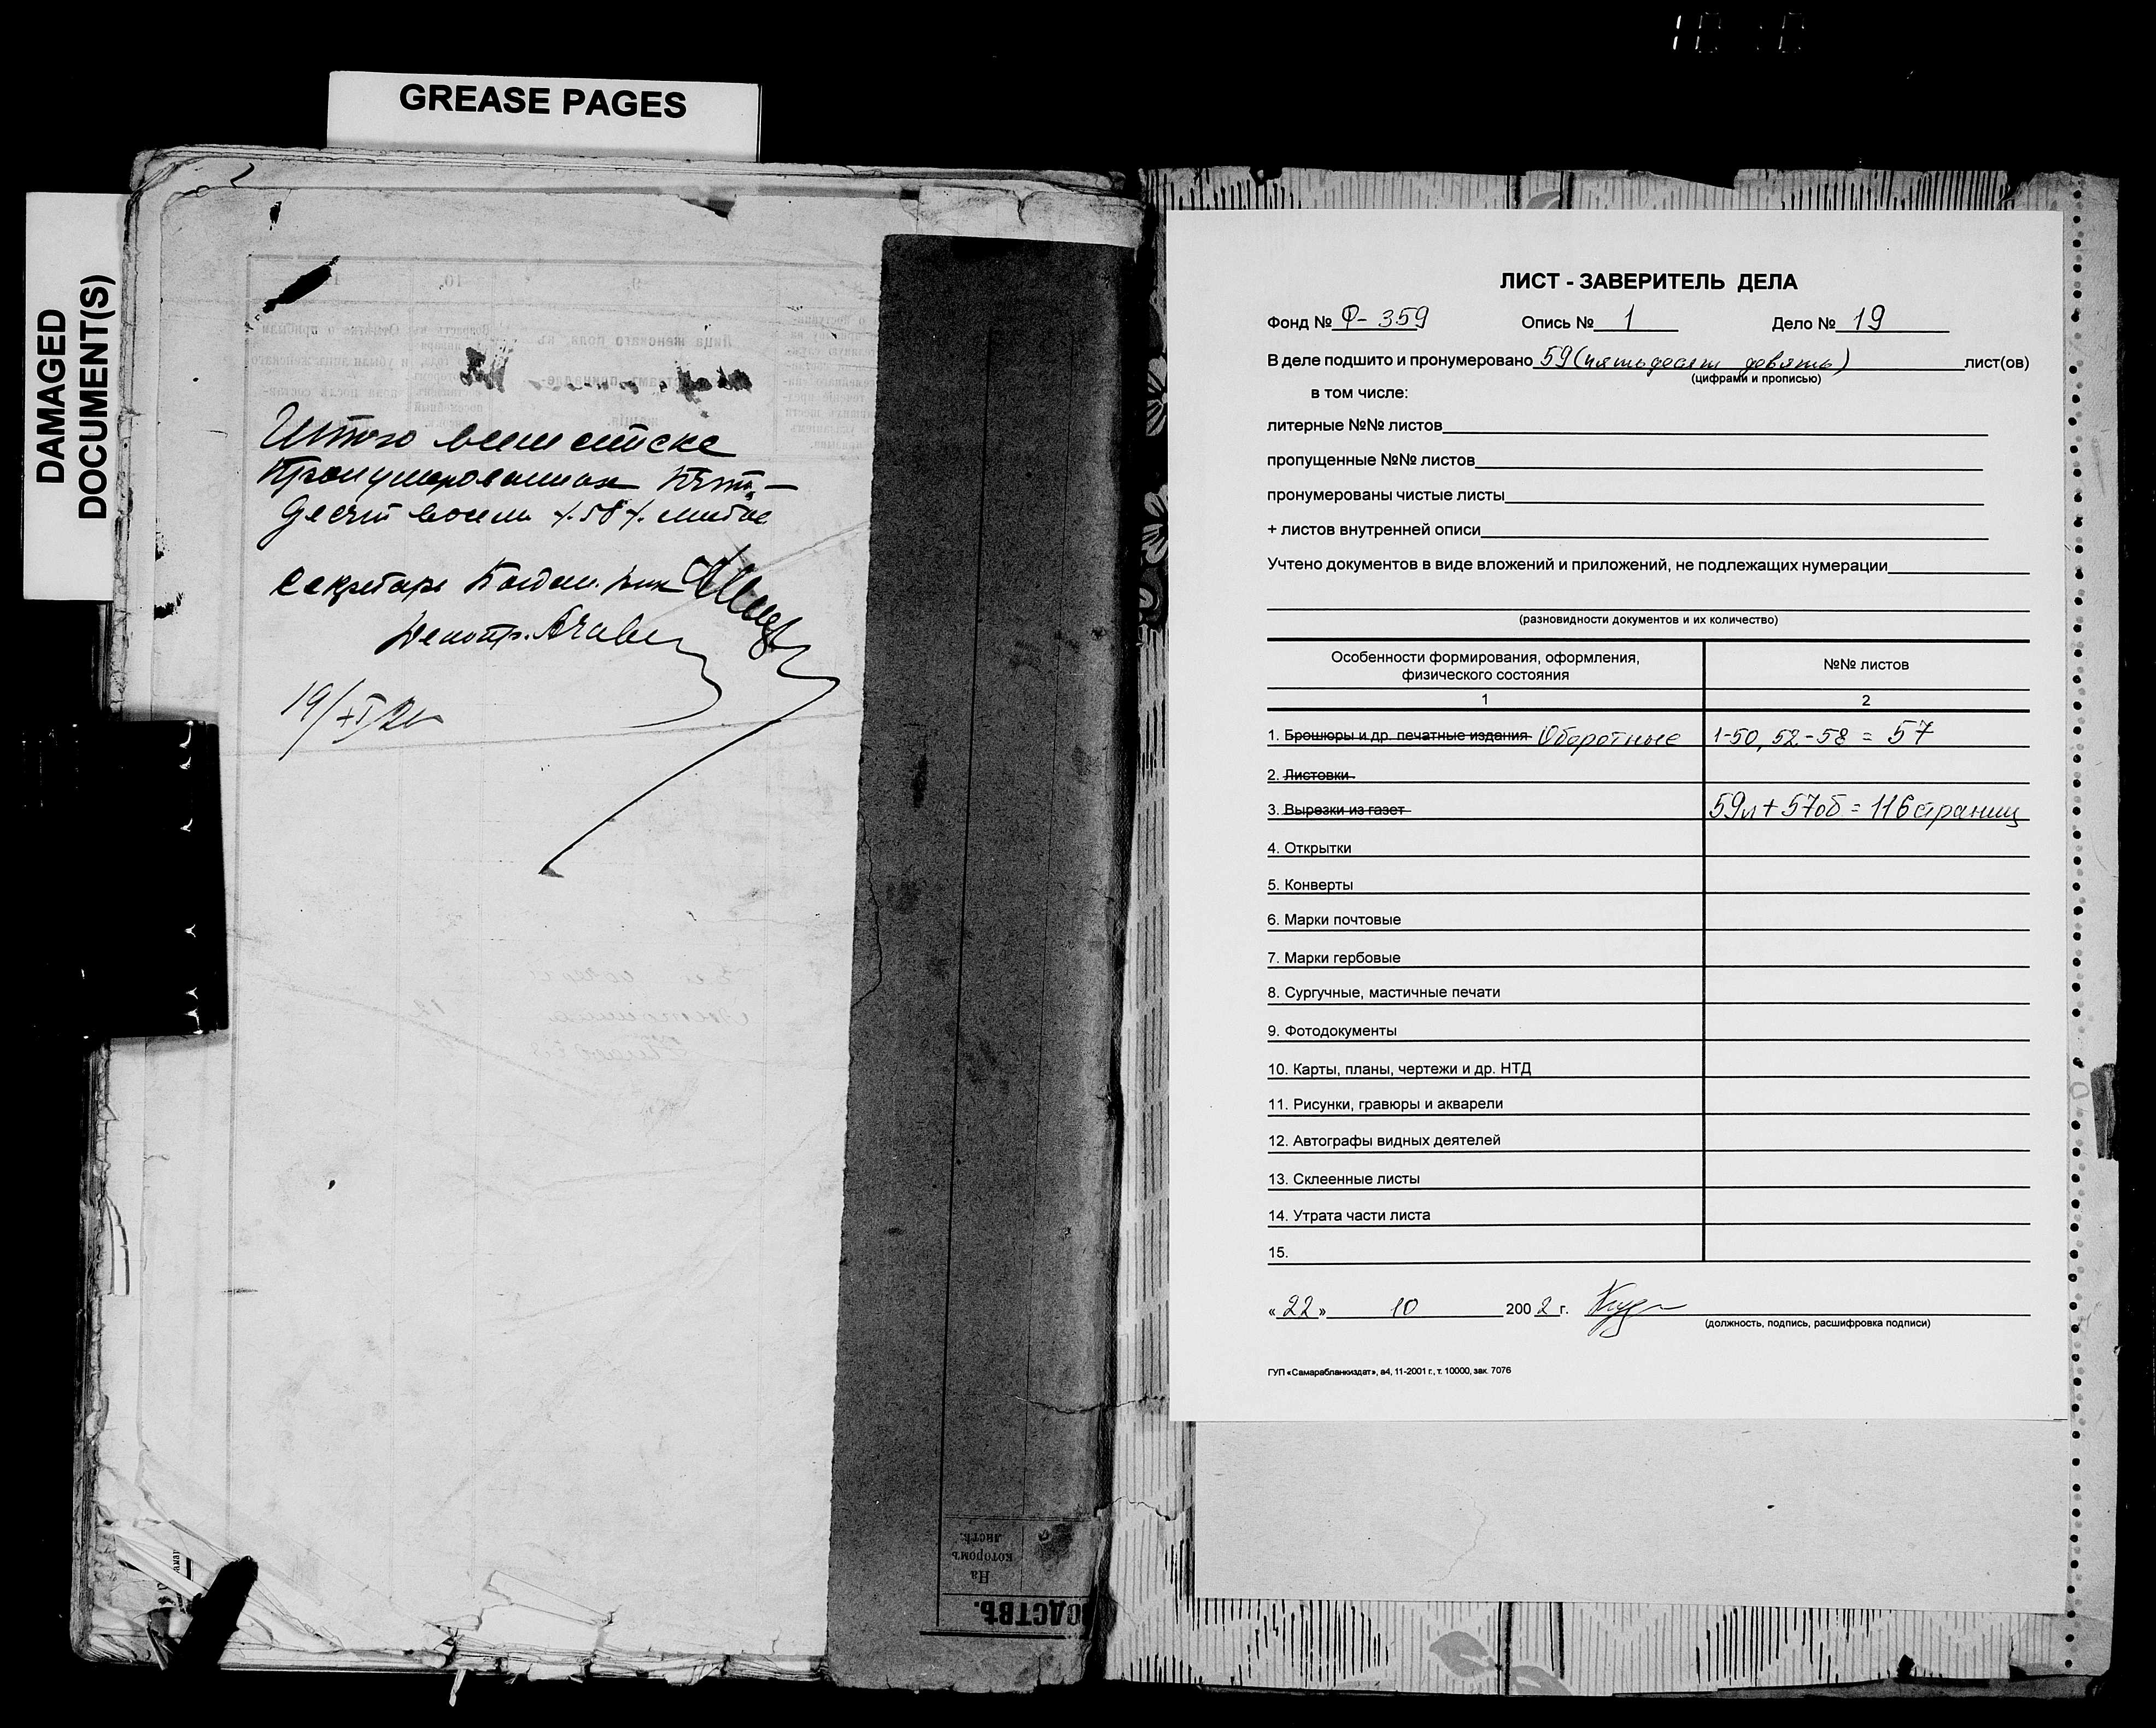 GREASE PAGES
DAMAGED
DOCUMENT(S)
Итого в сем списке
Пронумерованных Пять-
десят восемь /.58/. листов
Секретарь
19/XI
На
которомъ
листѣ.
ОДСТВѢ.
ЛИСТ - ЗАВЕРИТЕЛЬ ДЕЛА
Фонд № Ф-359 Опись № 1 Дело № 19
В деле подшито и пронумеровано 59 (пятьдесят девять) лист(ов)
(цифрами и прописью)
в том числе:
литерные №№ листов
пропущенные №№ листов
пронумерованы чистые листы
+ листов внутренней описи
Учтено документов в виде вложений и приложений, не подлежащих нумерации
(разновидности документов и их количество)
Особенности формирования, оформления, физического состояния №№ листов
1 2
1. Брошюры и др. печатные издания Оборотные 1-50, 52-58 = 57
2. Листовки
3. Вырезки из газет 59л + 57об = 116 страниц
4. Открытки
5. Конверты
6. Марки почтовые
7. Марки гербовые
8. Сургучные, мастичные печати
9. Фотодокументы
10. Карты, планы, чертежи и др. НТД
11. Рисунки, гравюры и акварели
12. Автографы видных деятелей
13. Склеенные листы
14. Утрата части листа
15.
« 22 » 10 200 2 г.
(должность, подпись, расшифровка подписи)
ГУП «Самарабланкиздат», а4, 11-2001 г., т. 10000, зак. 7076